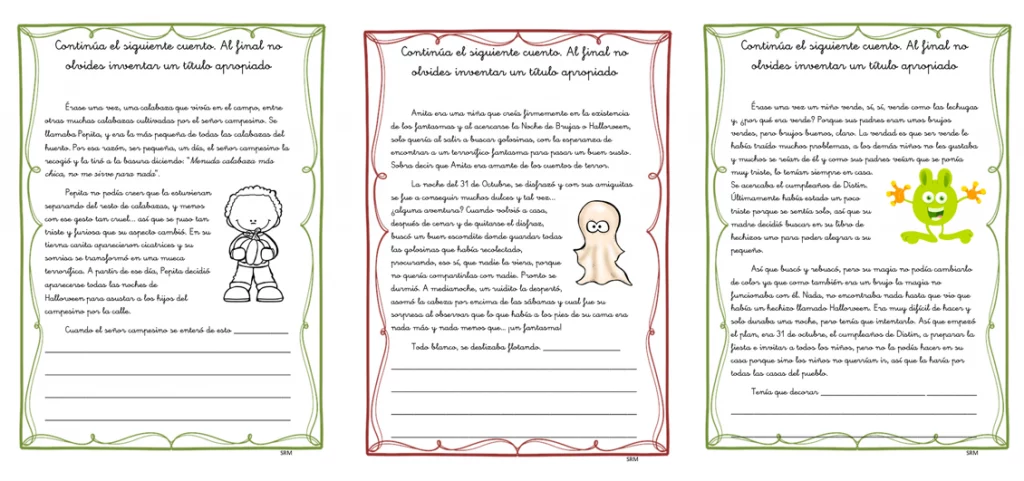 Continúa el siguiente cuento. Al final no
olvides inventar un título apropiado
Érase una vez, una calabaza que vivía en el campo, entre
otras muchas calabazas cultivadas por el señor campesino. Se
llamaba Pepita, y era la más pequeña de todas las calabazas del
huerto. Por esa razón, ser pequeña, un día, el señor campesino la
recogió y la tiró a la basura diciendo: "Menuda calabaza más
chica, no me sirve para nada".
Pepita no podía creer que la estuvieran
separando del resto de calabazas, y menos
con ese gesto tan cruel... así que se puso tan
triste y furiosa que su aspecto cambió. En su
tierna carita aparecieron cicatrices y su
sonrisa se transformó en una mueca
terrorífica. A partir de ese día, Pepita decidió
aparecerse todas las noches de
Halloween para asustar a los hijos del
campesino por la calle.
Cuando el señor campesino se enteró de esto
SRM
Continúa el siguiente cuento. Al final no
olvides inventar un título apropiado
Anita era una niña que creía firmemente en la existencia
de los fantasmas y al acercarse la Noche de Brujas o Halloween,
solo quería al salir a buscar golosinas, con la esperanza de
encontrar a un terrorífico fantasma para pasar un buen susto.
Sobra decir que Anita era amante de los cuentos de terror.
La noche del 31 de Octubre, se disfrazó y con sus amiguitas
se fue a conseguir muchos dulces y tal vez...
¿alguna aventura? Cuando volvió a casa,
después de cenar y de quitarse el disfraz,
buscó un buen escondite donde guardar todas
las golosinas que había recolectado,
procurando, eso sí, que nadie la viera, porque
no quería compartirlas con nadie. Pronto se
durmió. A medianoche, un ruidito la despertó,
asomó la cabeza por encima de las sábanas y cual fue su
sorpresa al observar que lo que había a los pies de su cama era
nada más y nada menos que... ¡un fantasma!
Todo blanco, se deslizaba flotando.
SRM
Continúa el siguiente cuento. Al final no
olvides inventar un título apropiado
Érase una vez un niño verde, sí, sí, verde como las lechugas
y, ¿por qué era verde? Porque sus padres eran unos brujos
verdes, pero brujos buenos, claro. La verdad es que ser verde le
había traído muchos problemas, a los demás niños no les gustaba
y muchos se reían de él y como sus padres veían que se ponía
muy triste, lo tenían siempre en casa.
Se acercaba el cumpleaños de Distim.
Últimamente había estado un poco
triste porque se sentía solo, así que su
madre decidió buscar en su libro de
hechizos uno para poder alegrar a su
pequeño.
Así que buscó y rebuscó, pero su magia no podía cambiarlo
de color ya que como también era un brujo la magia no
funcionaba con él. Nada, no encontraba nada hasta que vio que
había un hechizo llamado Halloween. Era muy difícil de hacer y
solo duraba una noche, pero tenía que intentarlo. Así que empezó
el plan, era 31 de octubre, el cumpleaños de Distim, a preparar la
fiesta e invitar a todos los niños, pero no la podía hacer en su
casa porque sino los niños no querrían ir, así que la haría por
todas las casas del pueblo.
Tenía que decorar
SRM